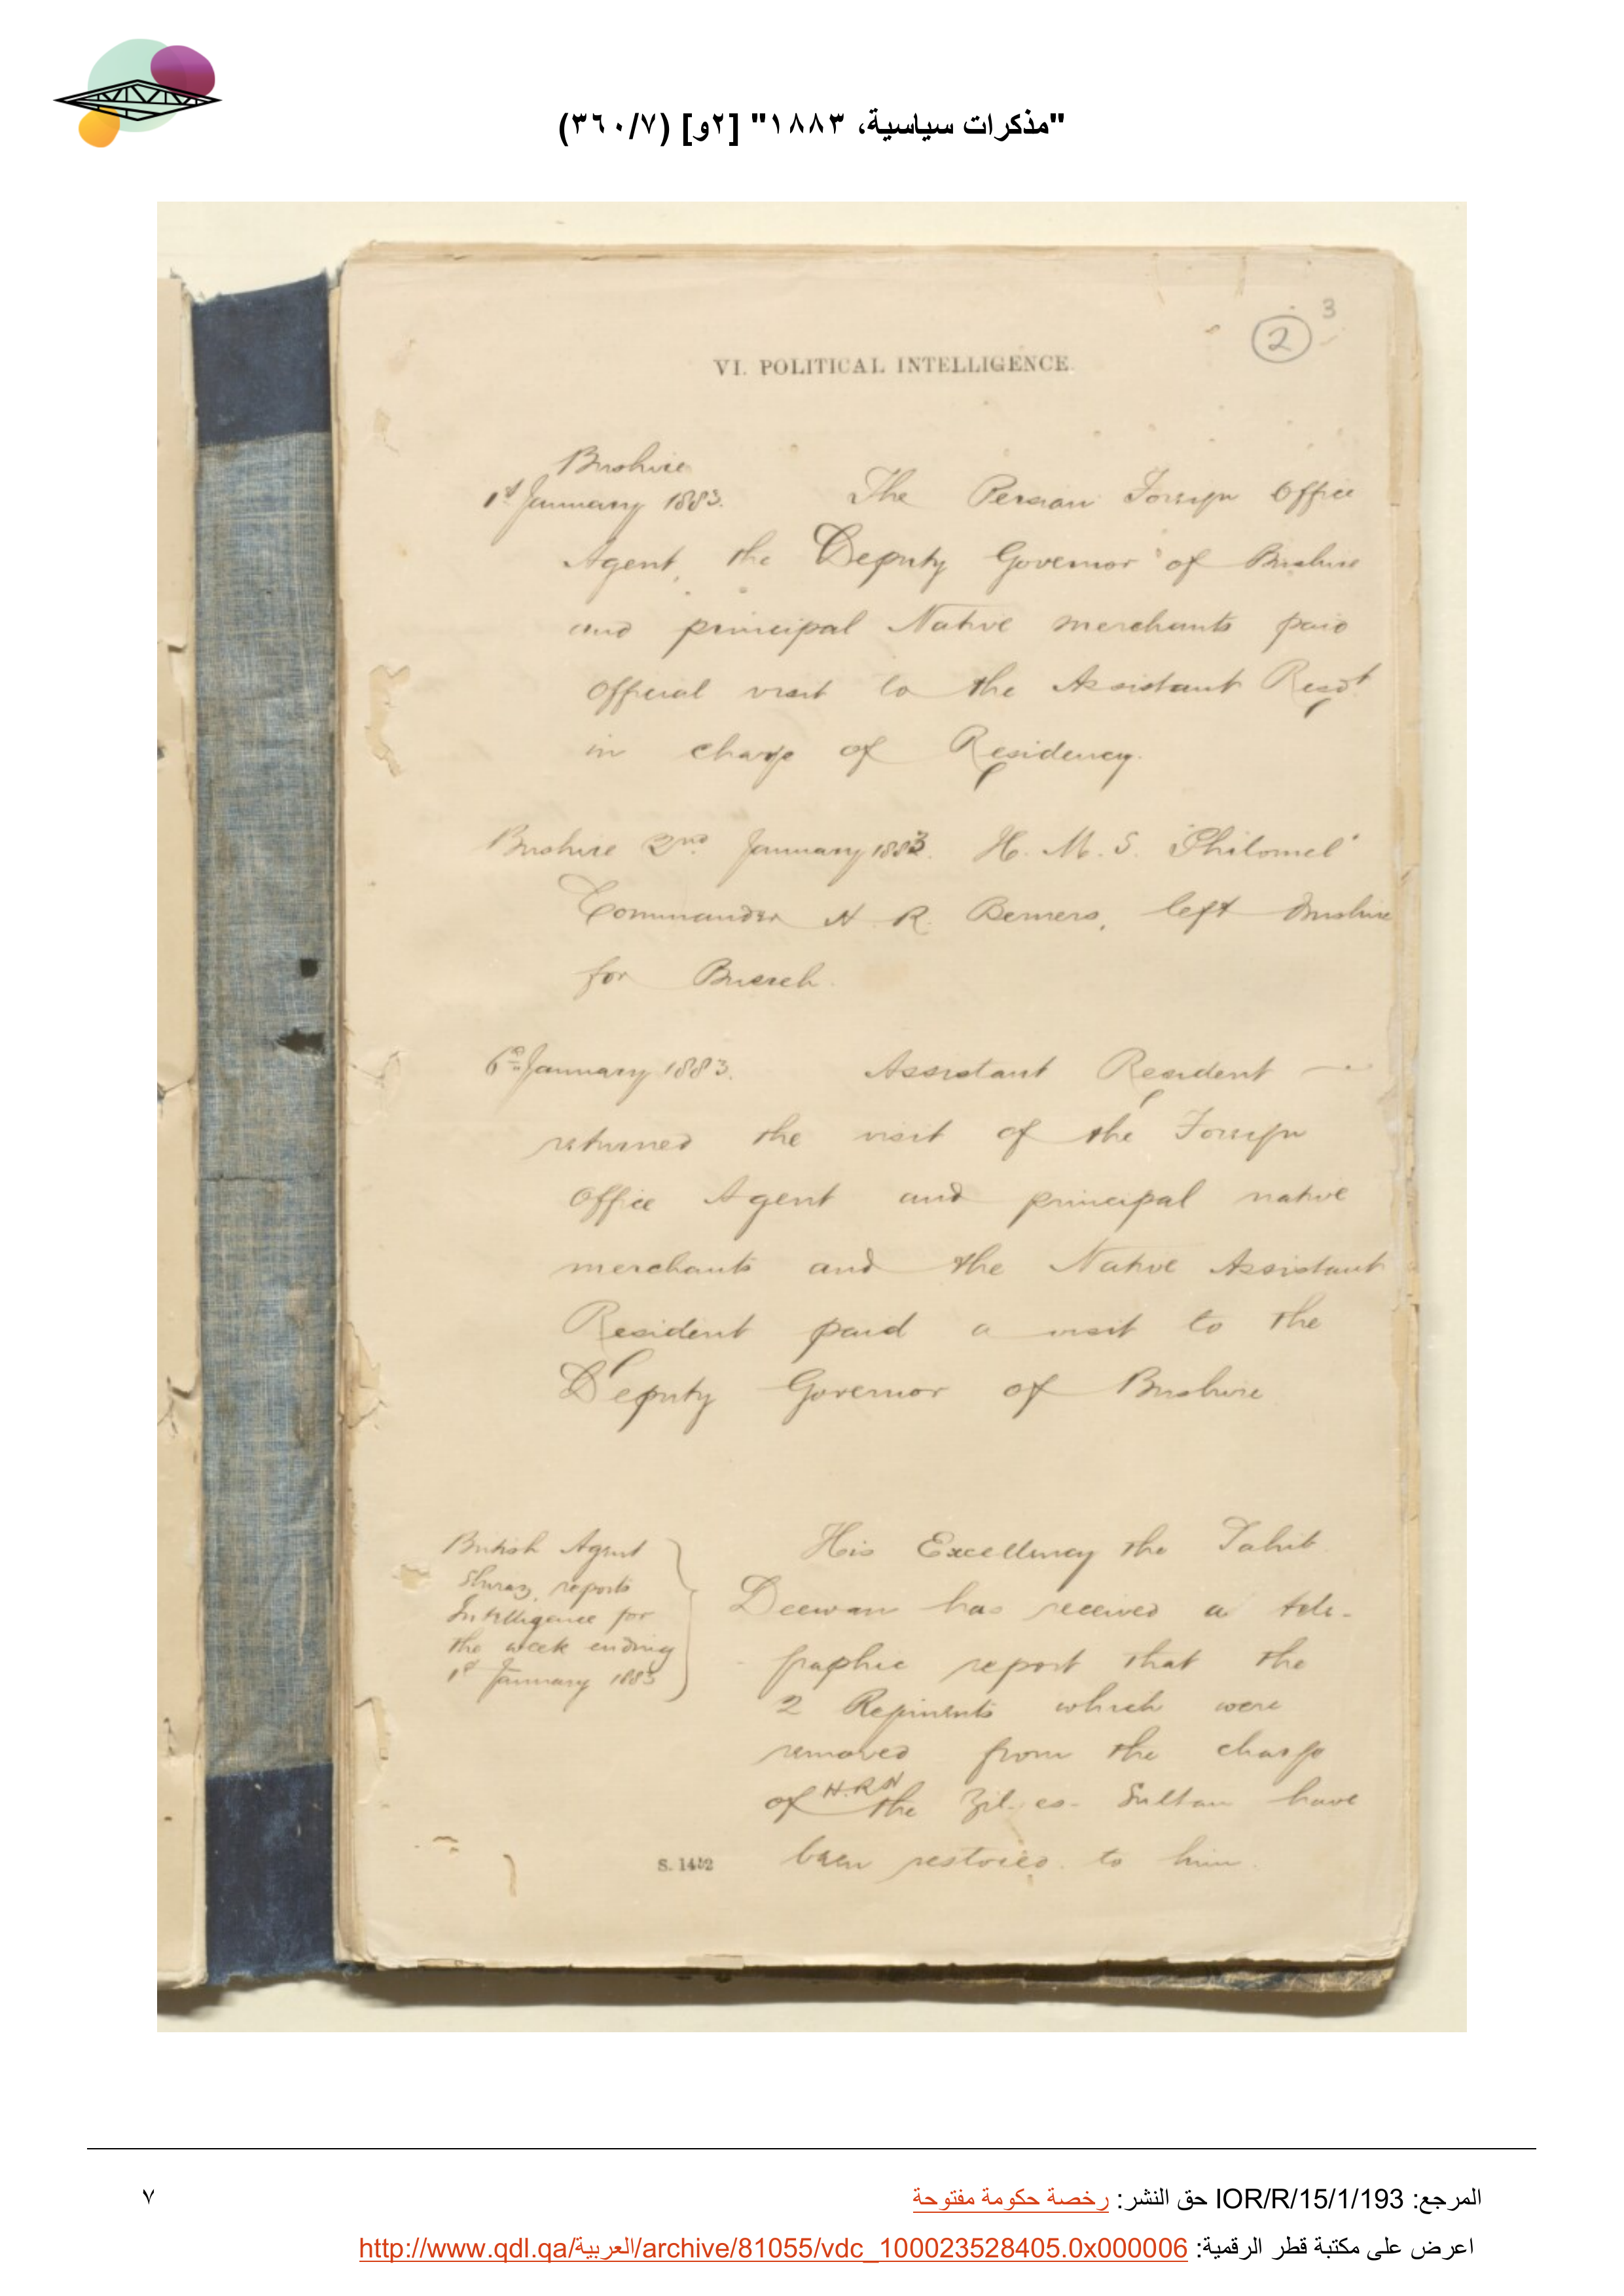 "مذكرات سياسية، ١٨٨٣" [٢و] (٣٦٠/٧)
3
2
VI. POLITICAL INTELLIGENCE.
Bushire
1st January 1883. The Persian Foreign Office
Agent, the Deputy Governor of Bushire
and principal Native merchants paid
official visit to the Assistant Resdt
in charge of Residency.
Bushire 2nd January 1883. H. M. S. "Philomel"
Commander H. R. Berners, left Bushire
for Busreh.
6th January 1883. Assistant Resident
returned the visit of the Foreign
Office Agent and principal native
merchants and the Native Assistant
Resident paid a visit to the
Deputy Governor of Bushire
British Agent
Shiraz, reports
Intelligence for
the week ending
1st January 1883
His Excellency the Sahib
Deewan has received a tele-
graphic report that the
2 Regiments which were
removed from the charge
of H.R.H the Zil-es-Sultan have
been restored to him.
S. 1452
المرجع: IOR/R/15/1/193 حق النشر: رخصة حكومة مفتوحة
٧
اعرض على مكتبة قطر الرقمية: http://www.qdl.qa/العربية/archive/81055/vdc_100023528405.0x000006